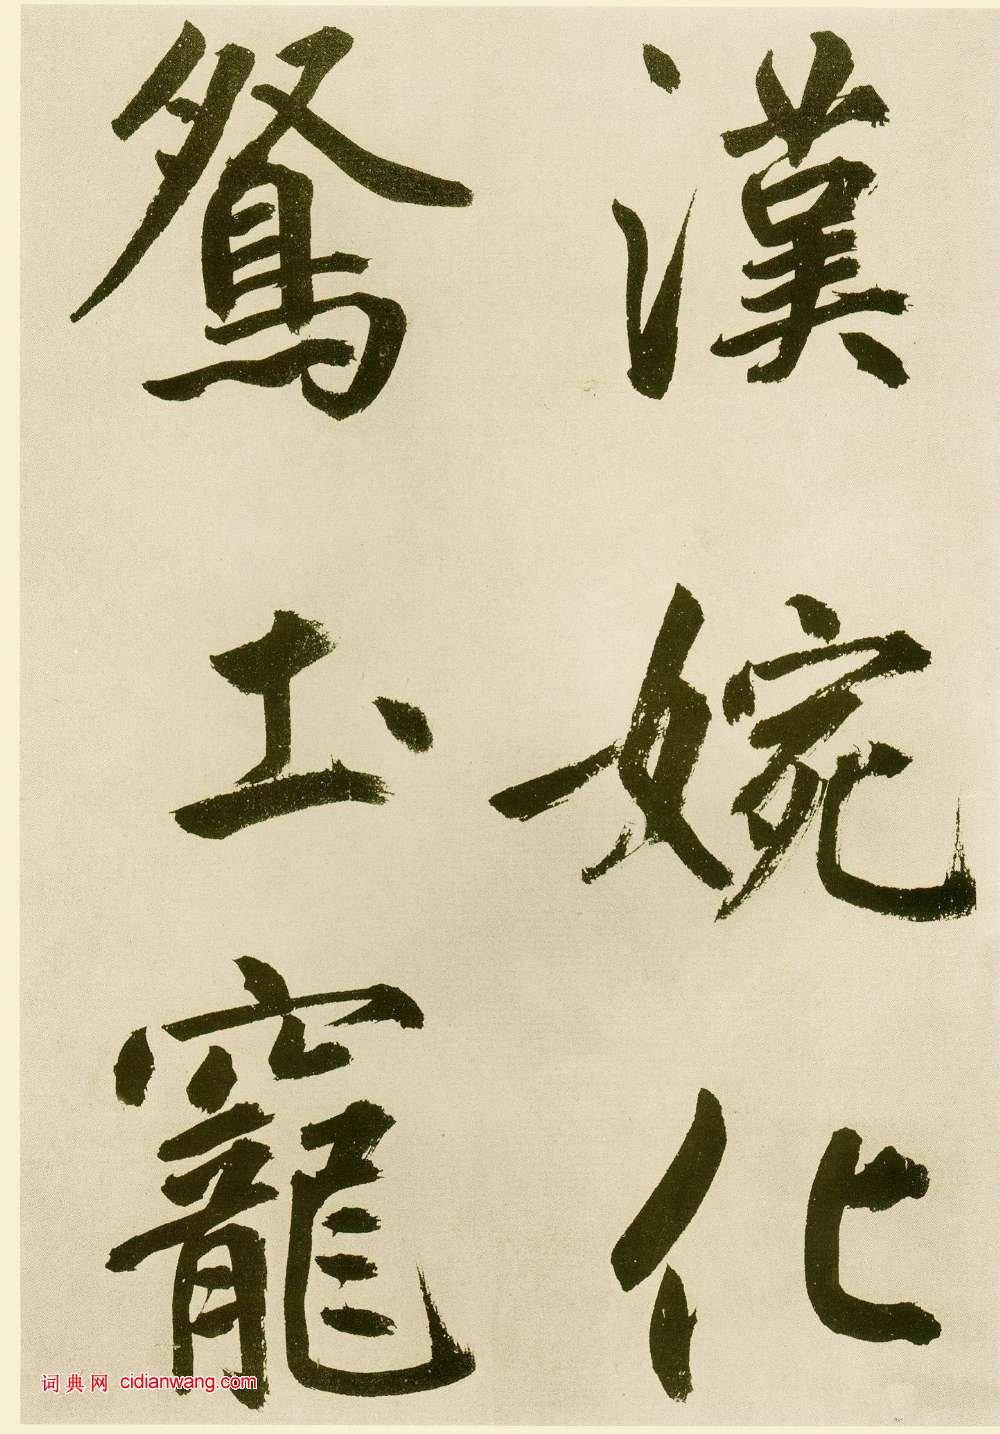 漢婉化
鴛土寵
词典网 cidianwang.com